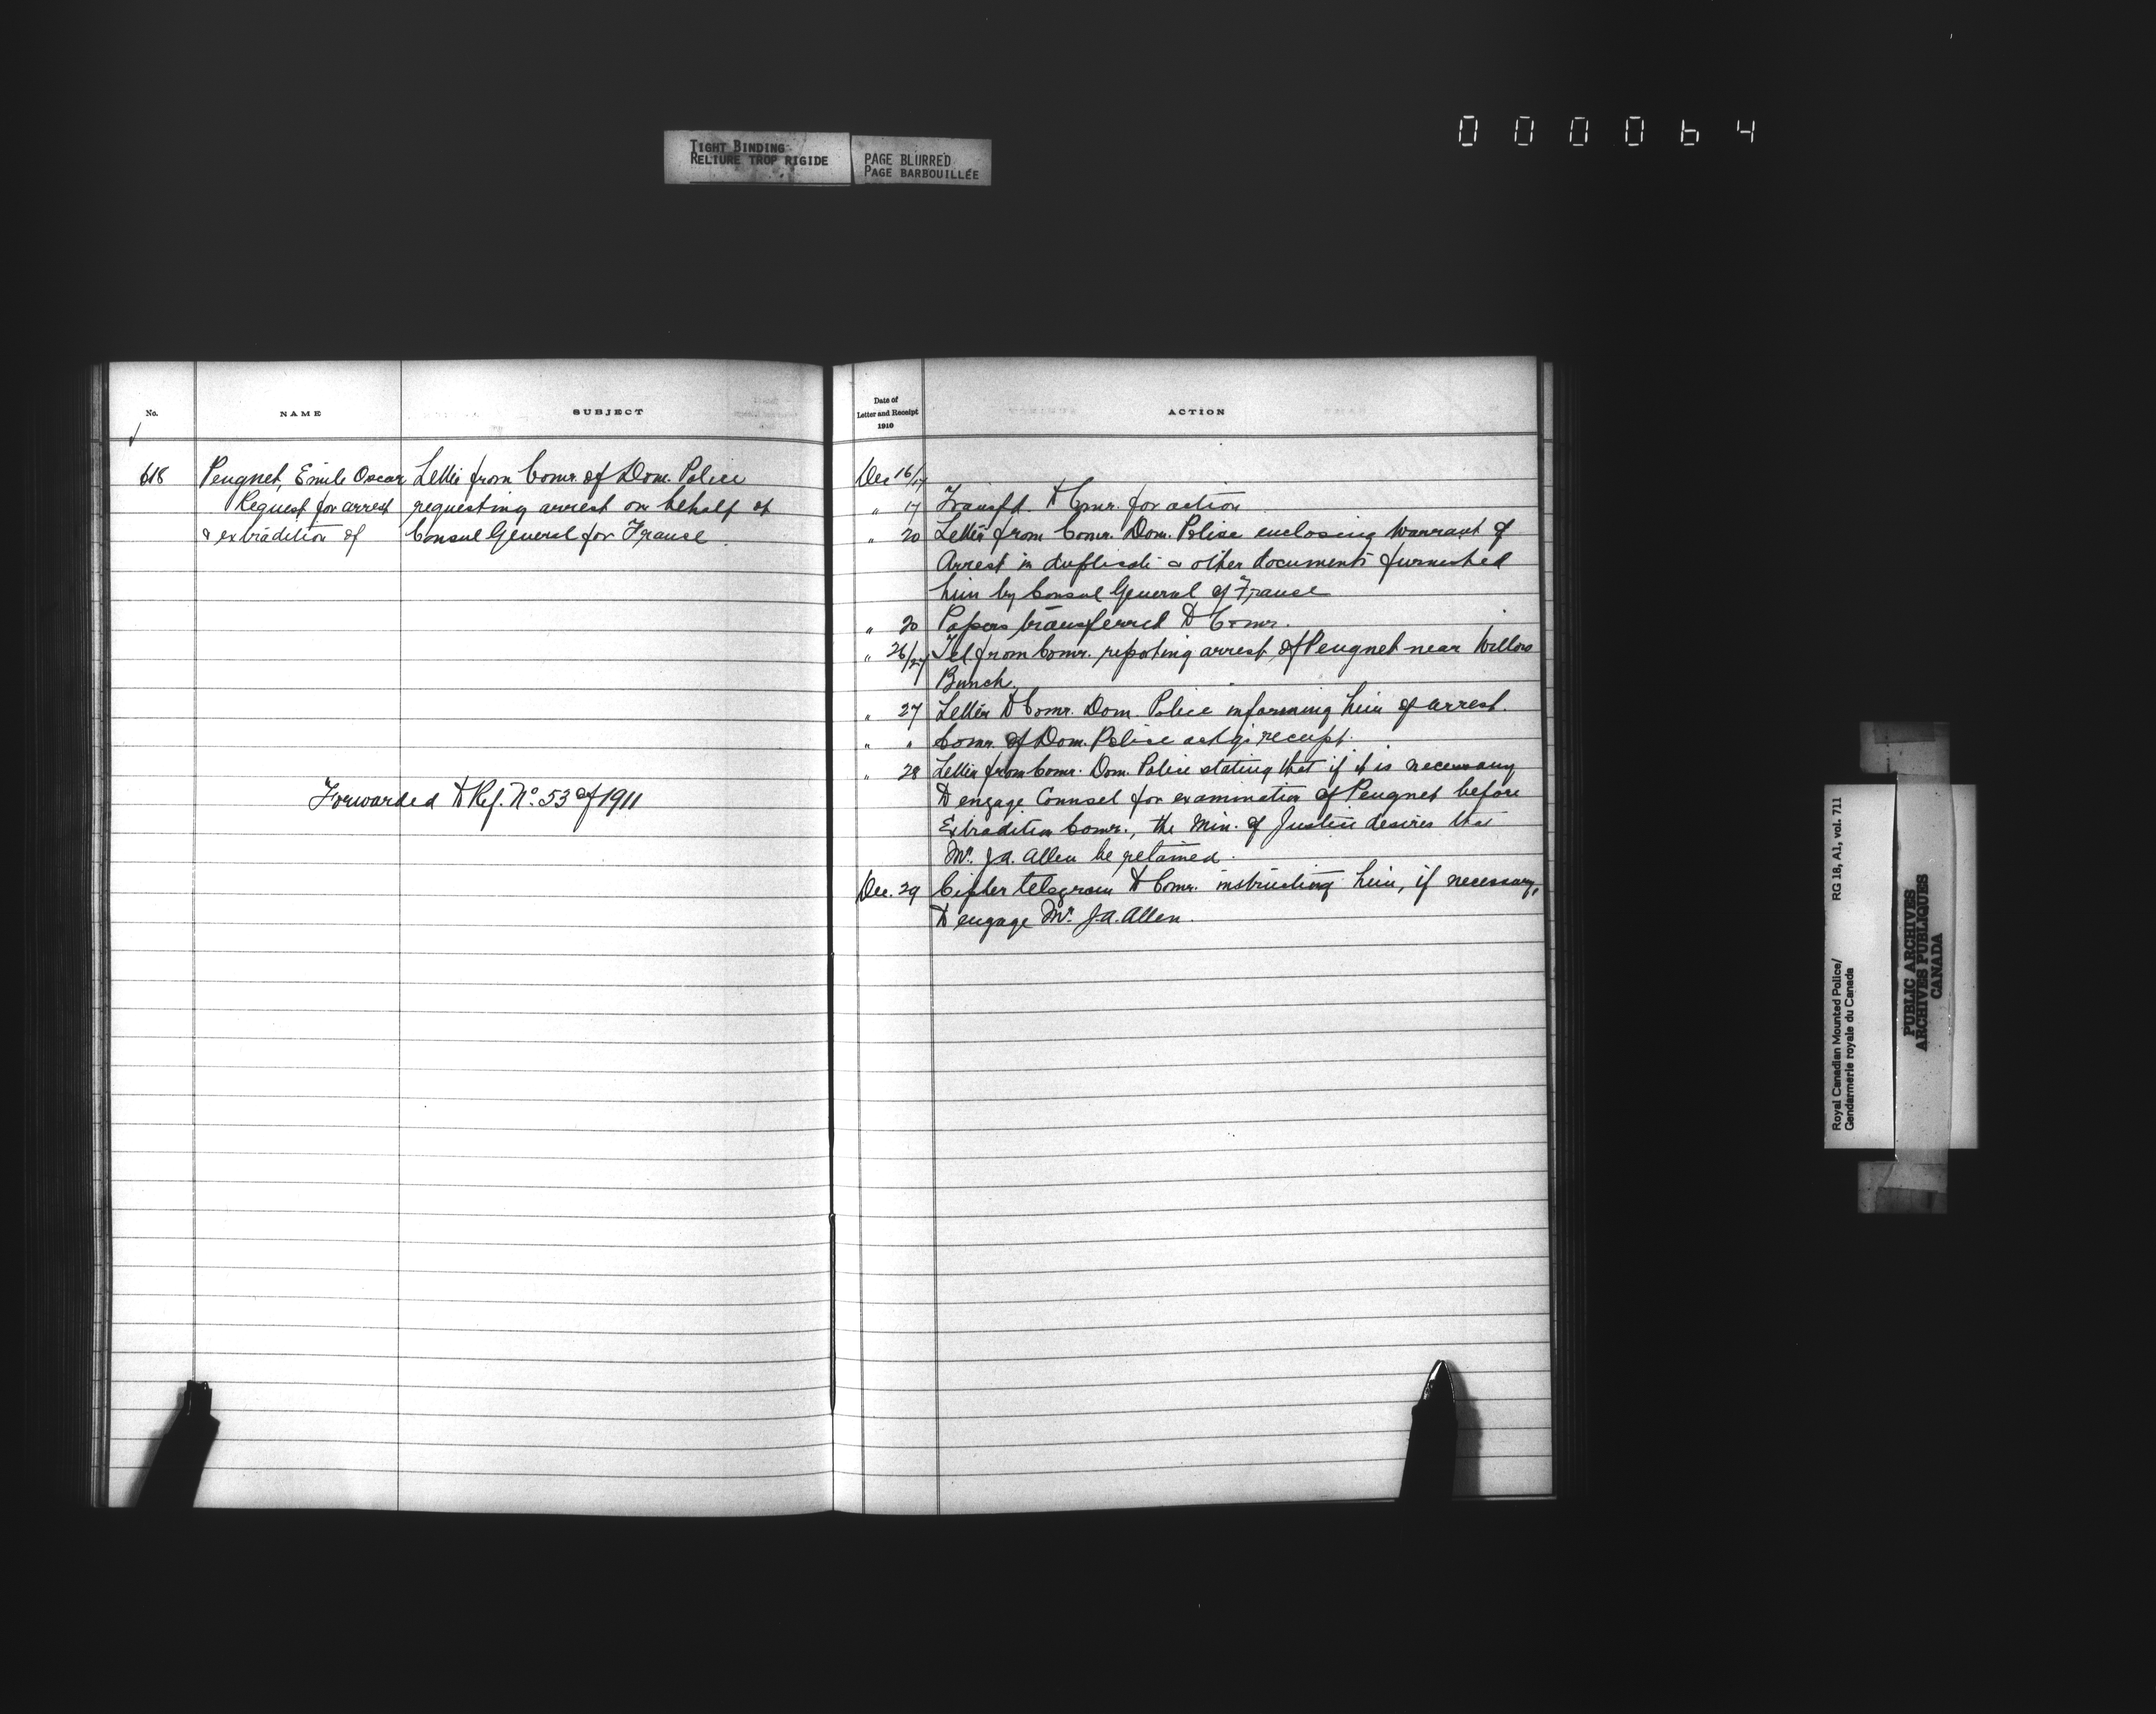 000064
TIGHT BINDING
RELIURE TROP RIGIDE
PAGE BLURRED
PAGE BARBOUILLÉE
No.
NAME
SUBJECT
618 Peugnet, Emile Oscar Letter from Comr. of Dom. Police
Request for arrest requesting arrest on behalf of
& extradition of Consul General for France.
Forwarded to Ref. No. 53 of 1911
Date of
Letter and Receipt
1910
ACTION
Dec 16/17
" 17 Transfd. to Comr. for action
" 20 Letter from Comr. Dom. Police enclosing Warrant of
Arrest in duplicate & other documents furnished
him by Consul General of France
" 20 Papers transferred to Comr.
" 26/27 Tel from Comr. reporting arrest of Peugnet near Willow
Bunch.
" 27 Letter to Comr. Dom. Police informing him of arrest.
" " Comr. of Dom. Police ackgs receipt.
" 28 Letter from Comr. Dom. Police stating that if it is necessary
to engage Counsel for examination of Peugnet before
Extradition Comr., the Min. of Justice desires that
Mr. J.A. Allen be retained.
Dec. 29 Cipher telegram to Comr. instructing him, if necessary,
to engage Mr. J.A. Allen.
Royal Canadian Mounted Police/
Gendarmerie royale du Canada
RG 18, A1, vol. 711
PUBLIC ARCHIVES
ARCHIVES PUBLIQUES
CANADA